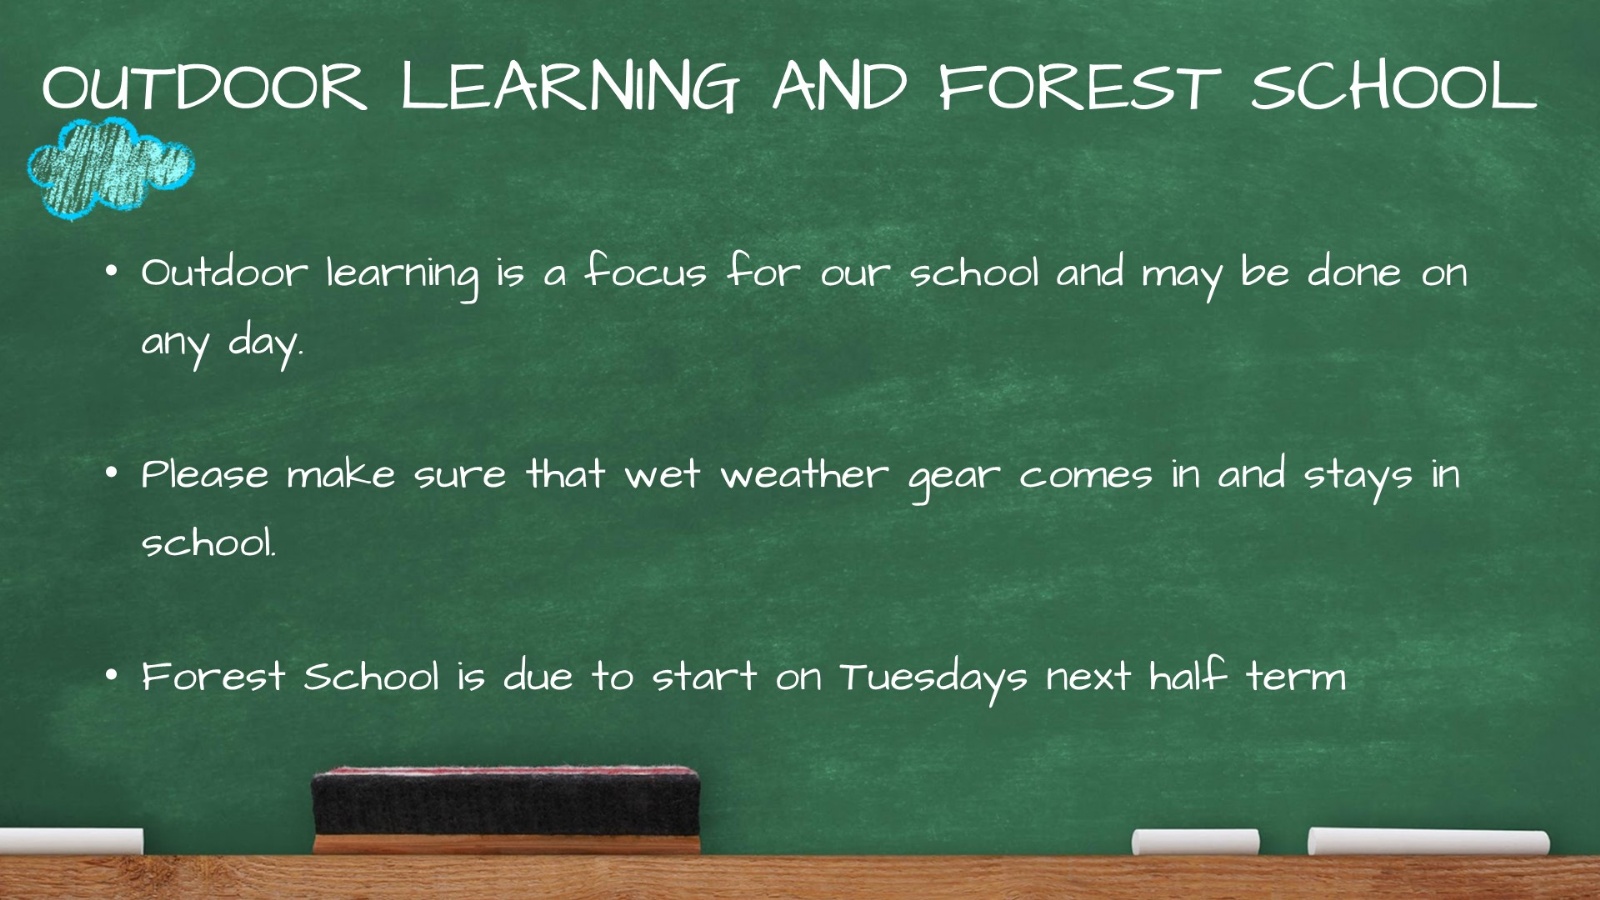 OUTDOOR LEARNING AND FOREST SCHOOL
• Outdoor learning is a focus for our school and may be done on
any day.
• Please make sure that wet weather gear comes in and stays in
school.
• Forest School is due to start on Tuesdays next half term